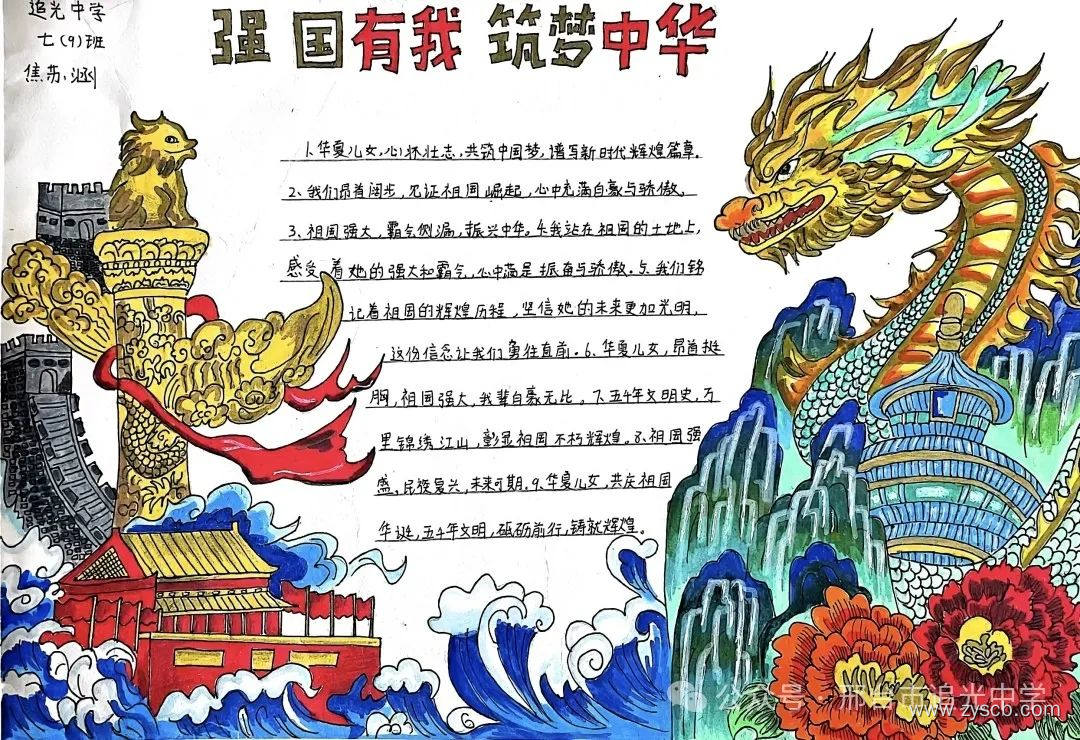 追光中学
七(9)班
焦苏涵
强国有我 筑梦中华
1.华夏儿女,心怀壮志,共筑中国梦,谱写新时代辉煌篇章.
2.我们昂首阔步,见证祖国崛起,心中充满自豪与骄傲.
3.祖国强大,霸气侧漏,振兴中华.4.我站在祖国的土地上,
感受着她的强大和霸气,心中满是振奋与骄傲.5.我们铭
记着祖国的辉煌历程,坚信她的未来更加光明,
这份信念让我们勇往直前.6.华夏儿女,昂首挺
胸,祖国强大,我辈自豪无比。7.五千年文明史,万
里锦绣江山,彰显祖国不朽辉煌。8.祖国强
盛,民族复兴,未来可期.9.华夏儿女,共庆祖国
华诞,五千年文明,砥砺前行,铸就辉煌。
公众号·邢台市追光中学
www.zyscb.com